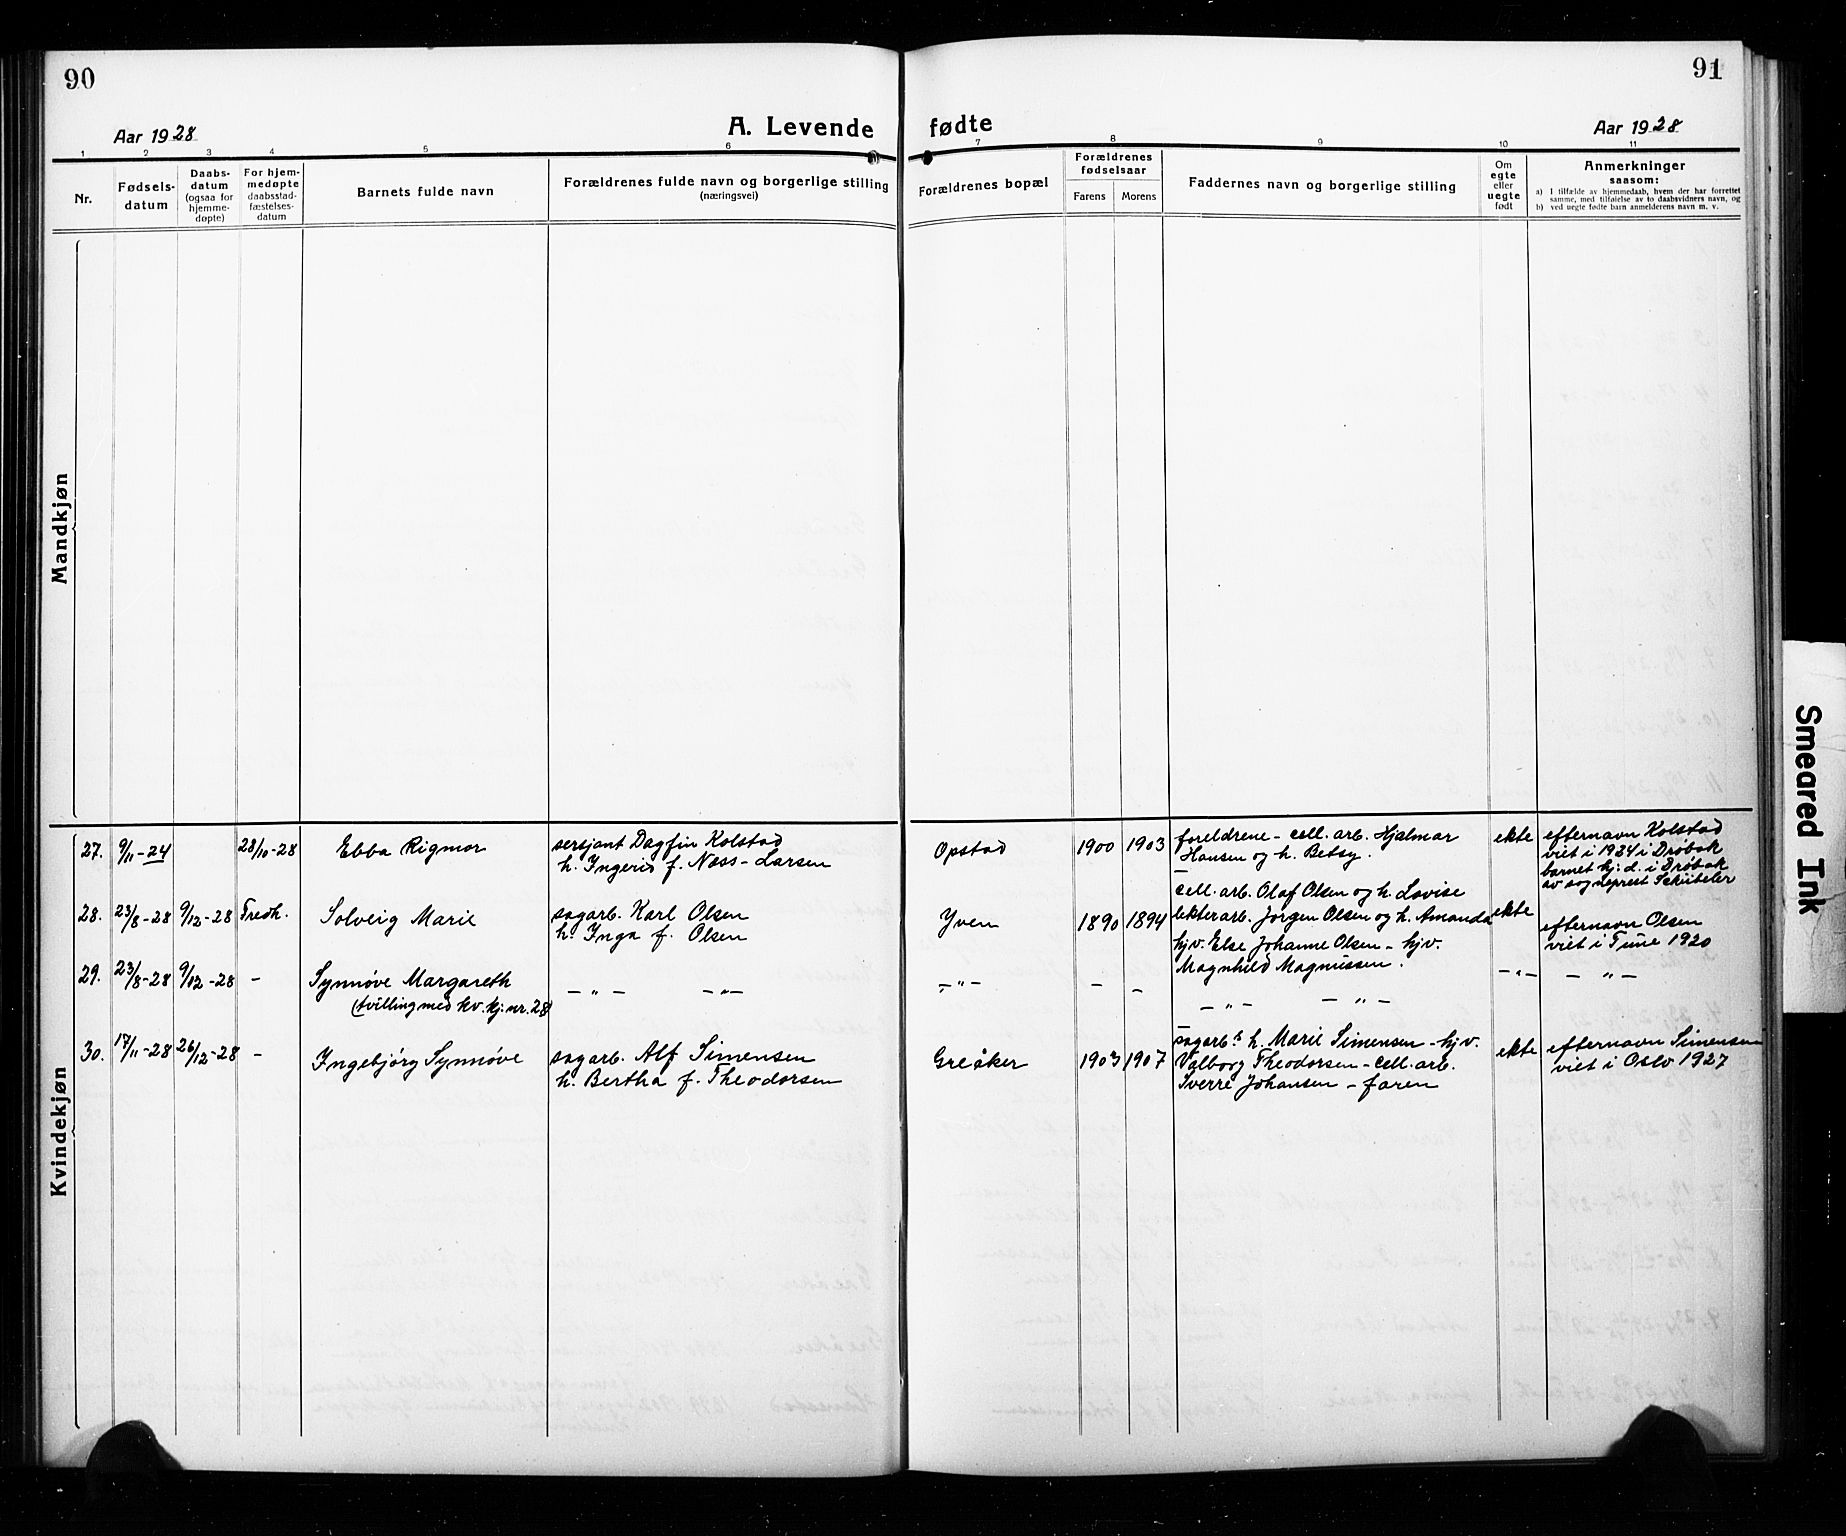 90
91
Aar 1928
A. Levende fødte
Aar 1928
1 2 3 4 5 6 7 8 9 10 11
Nr.
Fødsels-
datum
Daabs-
datum
(ogsaa for
hjemme-
døpte)
For hjem-
medøpte
daabsstad-
fæstelses-
datum
Barnets fulde navn
Forældrenes fulde navn og borgerlige stilling
(næringsvei)
Forældrenes bopæl
Forældrenes
fødselsaar
Farens Morens
Faddernes navn og borgerlige stilling
Om
egte
eller
uegte
født
Anmerkninger
saasom:
a) I tilfælde av hjemmedaab, hvem der har forrettet
samme, med tilføielse av to daabsvidners navn, og
b) ved uegte fødte barn anmelderens navn m. v.
Mandkjøn
Kvindekjøn
27. 9/11-24 28/10-28 Ebba Rigmor
sersjant Dagfin Kolstad
h. Ingerid f. Næss-Larsen
Opstad 1900 1903
foreldrene - cell. arb. Hjalmar
Hansen og h. Betsy.
ekte
efternavn Kolstad
viet i 1924 i Drøbak
barnet hj: d. i Drøbak
av sogneprest Schübeler
28. 23/8-28 9/12-28 Fredh. Solveig Marie
sagarb. Karl Olsen
h. Inga f. Olsen
Yven 1890 1894
cell. arb. Olaf Olsen og h. Lovise
lekterarb. Jørgen Olsen og h. Amanda
hjv. Else Johanne Olsen - hjv.
Magnhild Magnussen.
ekte
efternavn Olsen
viet i Tune 1920
29. 23/8-28 9/12-28 - Synnøve Margareth
(tvilling med kv. kj. nr. 28)
- " - - " -
- " - - -
- " - - " -
- " - - " -
30. 17/11-28 26/12-28 - Ingebjørg Synnøve
sagarb. Alf Simensen
h. Bertha f. Theodorsen
Greåker 1903 1907
sagarb.s h. Marie Simensen - hjv.
Valborg Theodorsen - cell. arb.
Sverre Johansen - faren
ekte
efternavn Simensen
viet i Oslo 1927
Smeared Ink